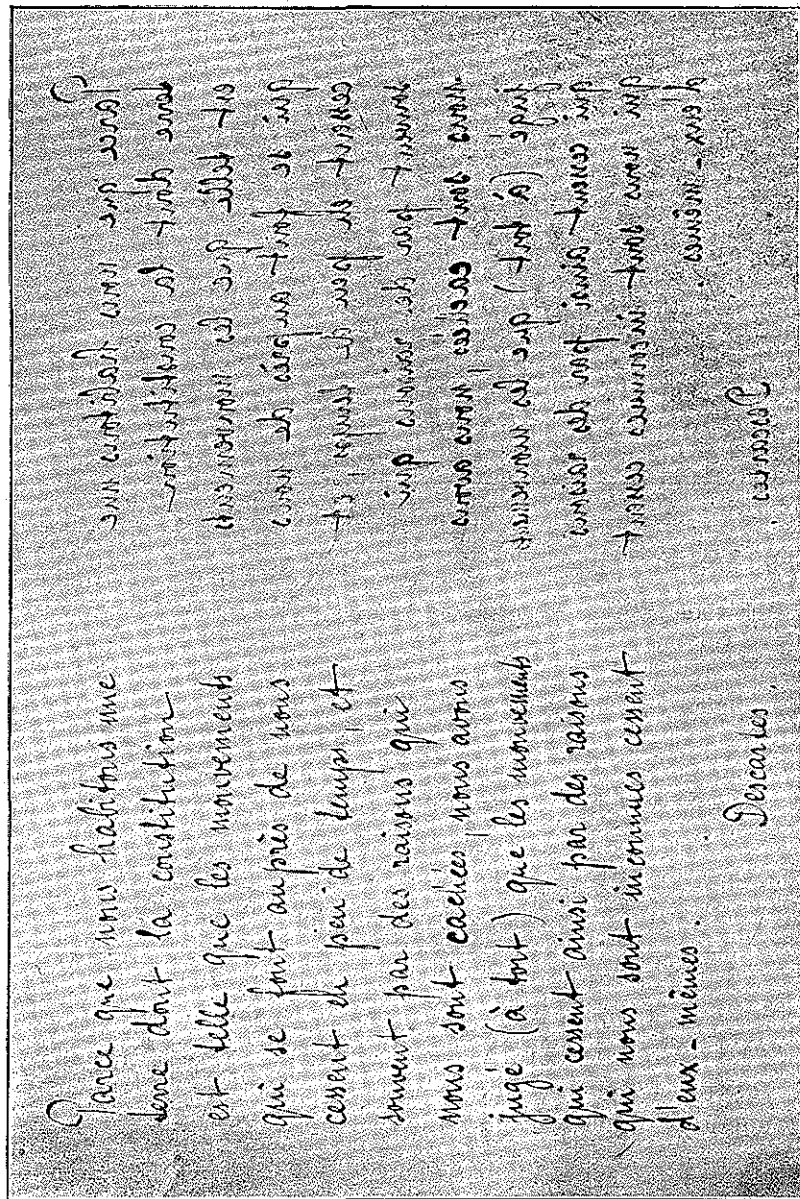 Parce que nous habitons une
terre dont la constitution
est telle que les mouvements
qui se font auprès de nous
cessent en peu de temps, et
souvent par des raisons qui
nous sont cachées, nous avons
jugé (à tort) que les mouvements
qui cessent ainsi par des raisons
qui nous sont inconnues cessent
d'eux-mêmes.
Descartes
Parce que nous habitons une
terre dont la constitution
est telle que les mouvements
qui se font auprès de nous
cessent en peu de temps, et
souvent par des raisons qui
nous sont cachées nous avons
jugé (à tort) que les mouvements
qui cessent ainsi par des raisons
qui nous sont inconnues cessent
d'eux-mêmes.
Descartes